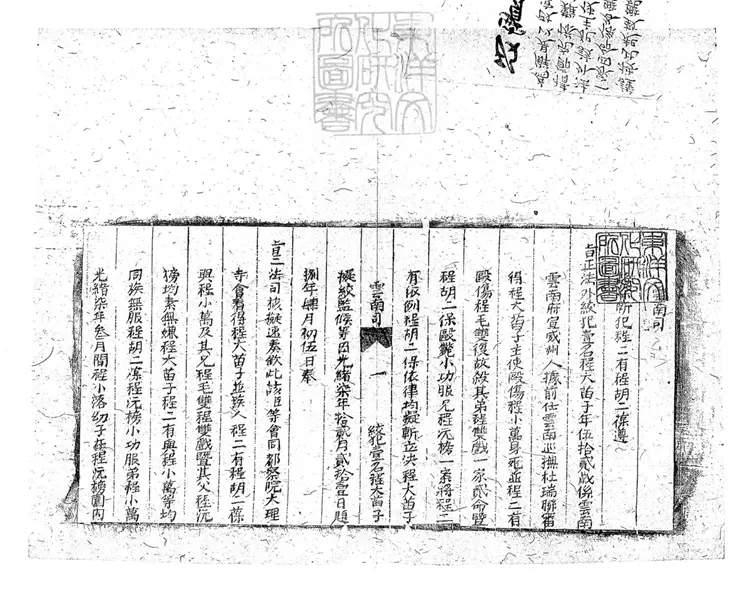 東洋文
化研究
所圖書
東洋文
化研究
所圖書
南司
斬犯程二有程胡二保遵
旨正法外絞犯壹名程大苗子年伍拾貳歲係雲南
雲南府宣威州人據前任雲南巡撫杜瑞聯審
得程大苗子主使毆傷程小萬身死並程二有
毆傷程毛雙後故殺其弟程雙戲一家貳命暨
程胡二保毆斃小功服兄程沅榜一案將程二
有依例程胡二保依律均擬斬立決程大苗子
雲南司 一 絞犯壹名程大苗子
擬絞監候等因光緒柒年拾貳月貳拾壹日題
捌年肆月初伍日奉
旨三法司核擬速奏欽此該臣等會同都察院大理
寺會看得程大苗子並族人程二有程胡二保
與程小萬及其兄程毛雙程雙戲暨其父程沅
榜均素無嫌程大苗子程二有與程小萬等均
同族無服程胡二保程沅榜小功服弟程小萬
光緒柒年叁月間程小落幼子在程沅榜園內